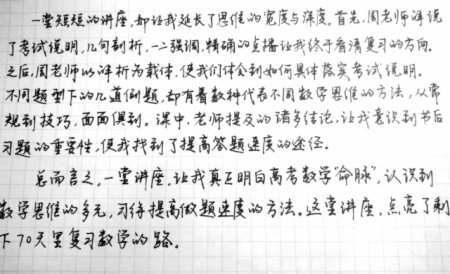 一堂短短的讲座,却让我延长了思维的宽度与深度。首先,周老师详说
了考试说明,几句剖析,一二强调,精确的点播让我终于看清复习的方向。
之后,周老师以评析为载体,使我们体会到如何具体落实考试说明。
不同题型下的几道例题,却有着数种代表不同数学思维的方法,从常
规到技巧,面面俱到。课中,老师提及的诸多结论,让我意识到书后
习题的重要性,使我找到了提高答题速度的途径。
总而言之,一堂讲座,让我真正明白高考数学“命脉”,认识到
数学思维的多元,习得提高做题速度的方法。这堂讲座,点亮了剩
下70天里复习数学的路。